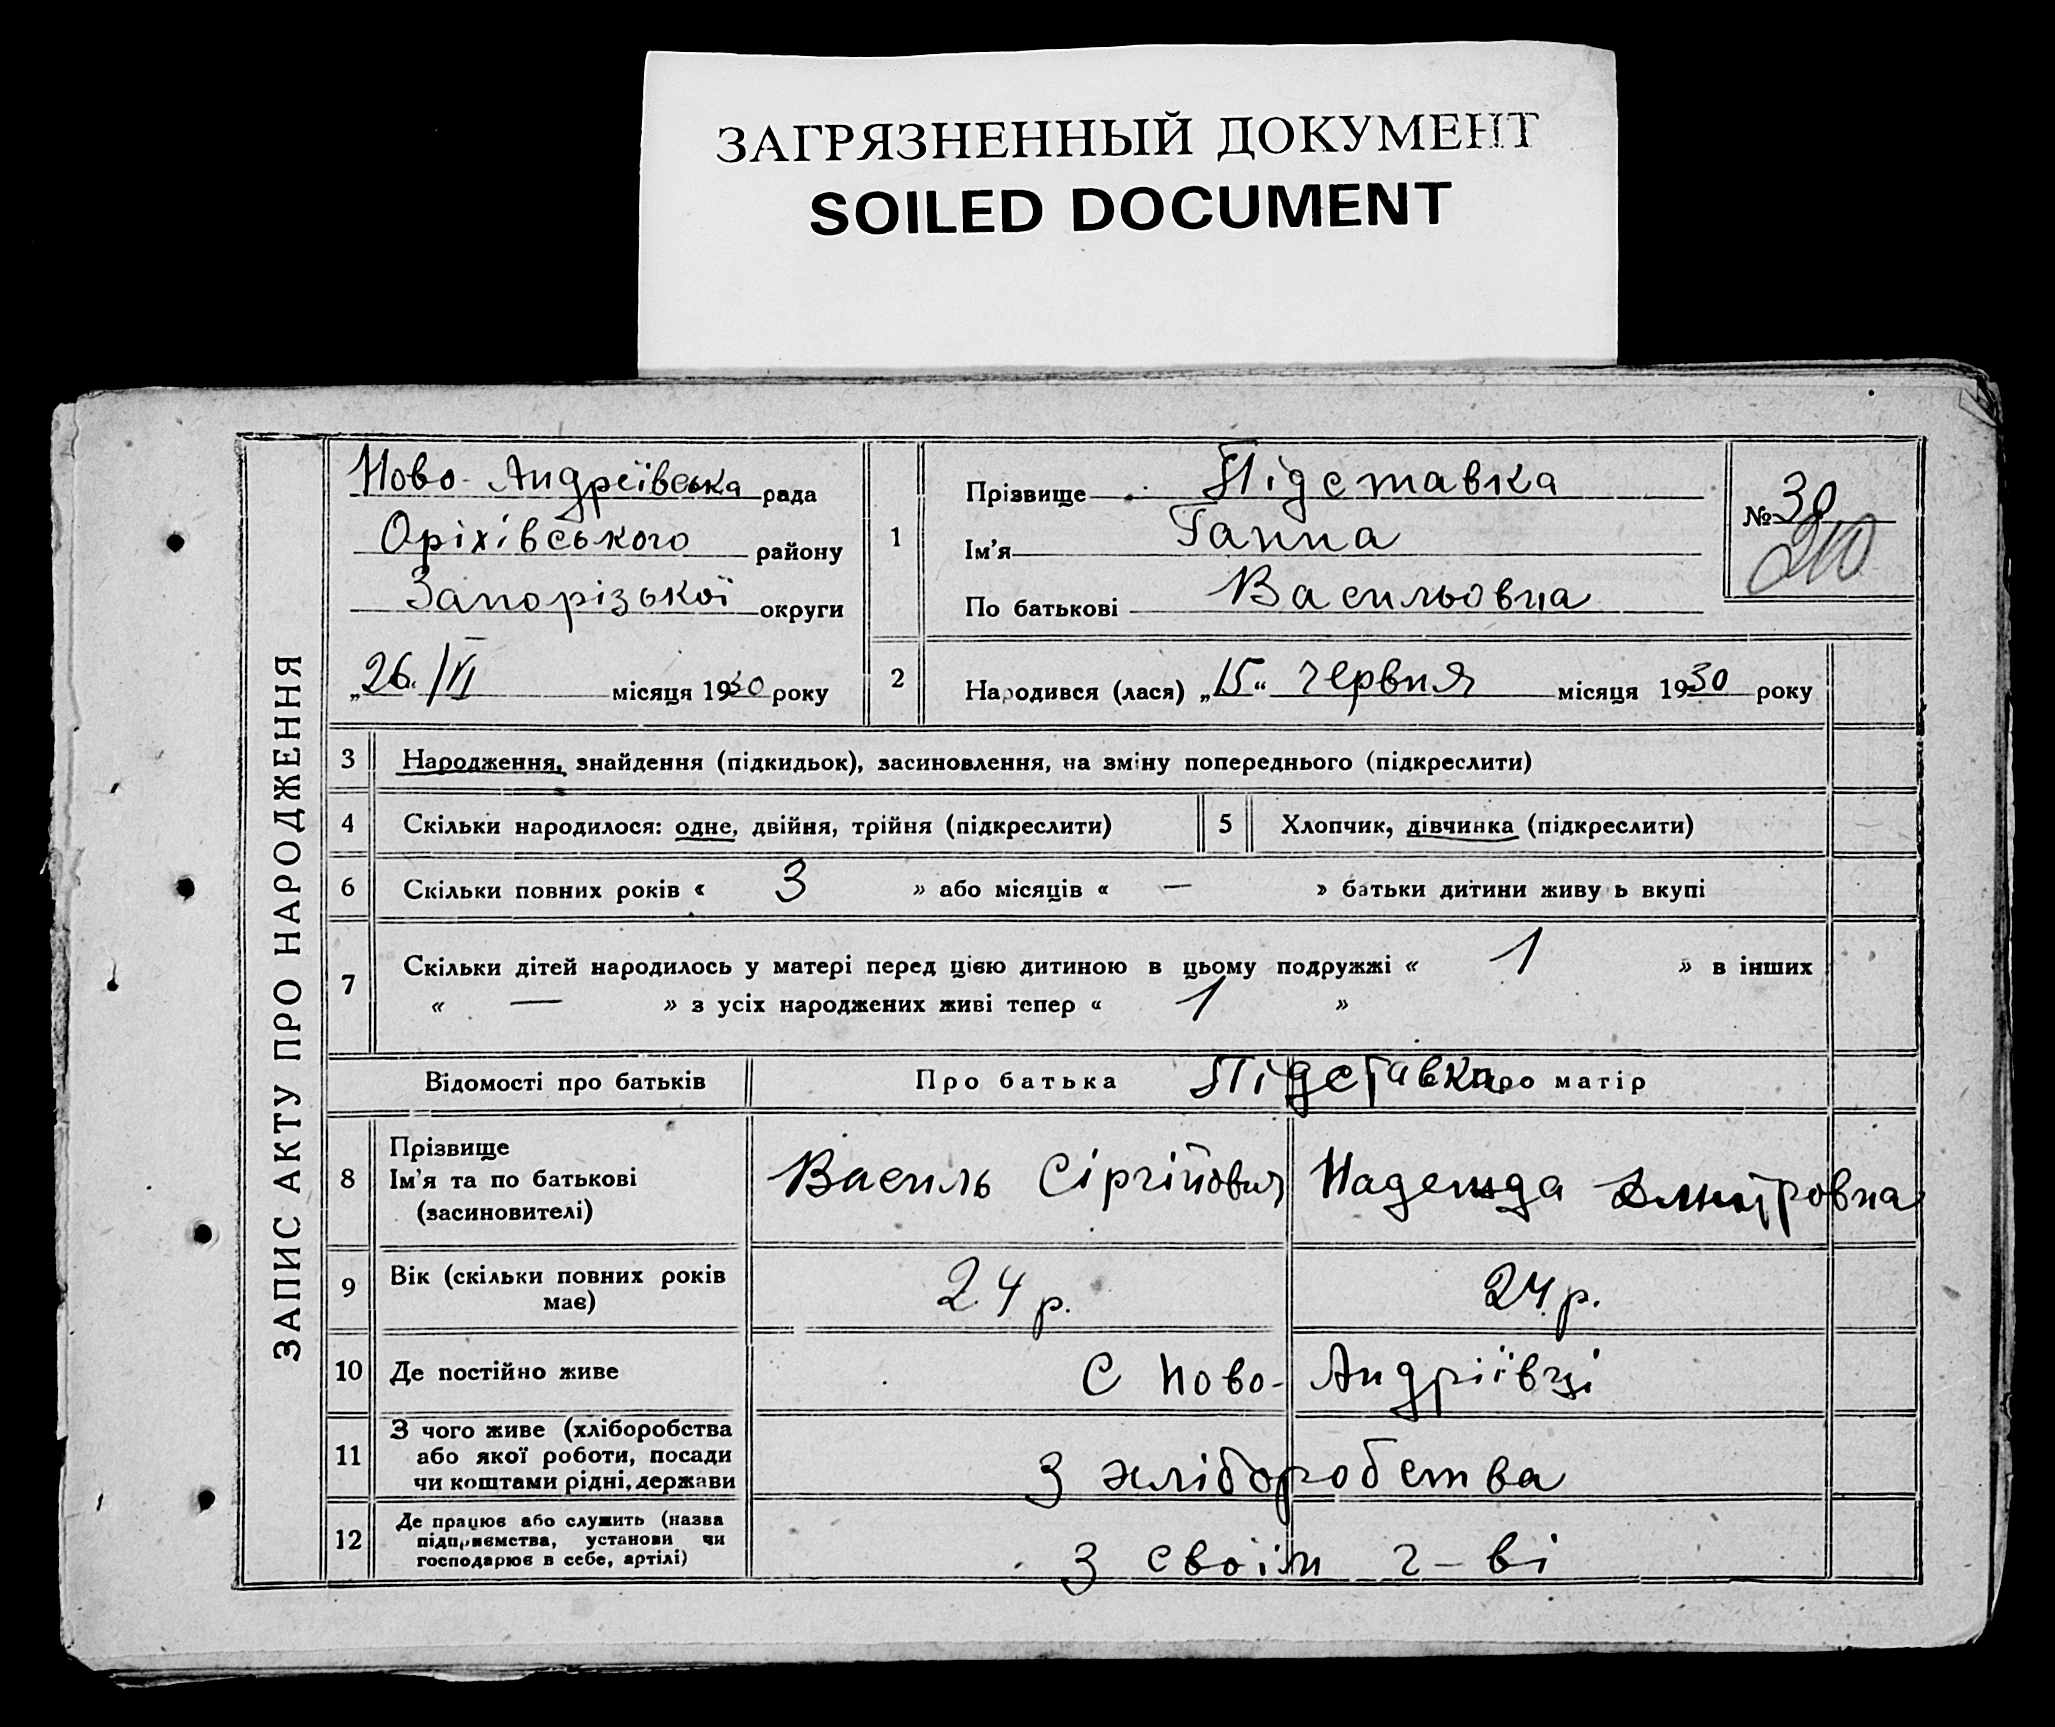 ЗАГРЯЗНЕННЫЙ ДОКУМЕНТ
SOILED DOCUMENT
ЗАПИС АКТУ ПРО НАРОДЖЕННЯ
Ново-Андреївська рада
Оріхівського району
Запорізької округи
„26“/VI місяця 1930 року
1
Прізвище Підставка
Ім'я Ганна
По батькові Васильовна
№ 30
2 Народився (лася) „15“ червня місяця 1930 року
3 Народження, знайдення (підкидьок), засиновлення, на зміну попереднього (підкреслити)
4 Скільки народилося: одне, двійня, трійня (підкреслити) 5 Хлопчик, дівчинка (підкреслити)
6 Скільки повних років « 3 » або місяців « — » батьки дитини живуть вкупі
7 Скільки дітей народилось у матері перед цією дитиною в цьому подружжі « 1 » в інших
« — » з усіх народжених живі тепер « 1 »
Відомості про батьків Про батька Підставка Про матір
8 Прізвище
Ім'я та по батькові
(засиновителі)
Василь Сіргійович Надежда Дмитровна
9 Вік (скільки повних років
має)
24 р. 24 р.
10 Де постійно живе С Ново-Андріївці
11 З чого живе (хліборобства
або якої роботи, посади
чи коштами рідні, держави
З хліборобства
12 Де працює або служить (назва
підприємства, установи чи
господарює в себе, артілі)
З своім г-ві